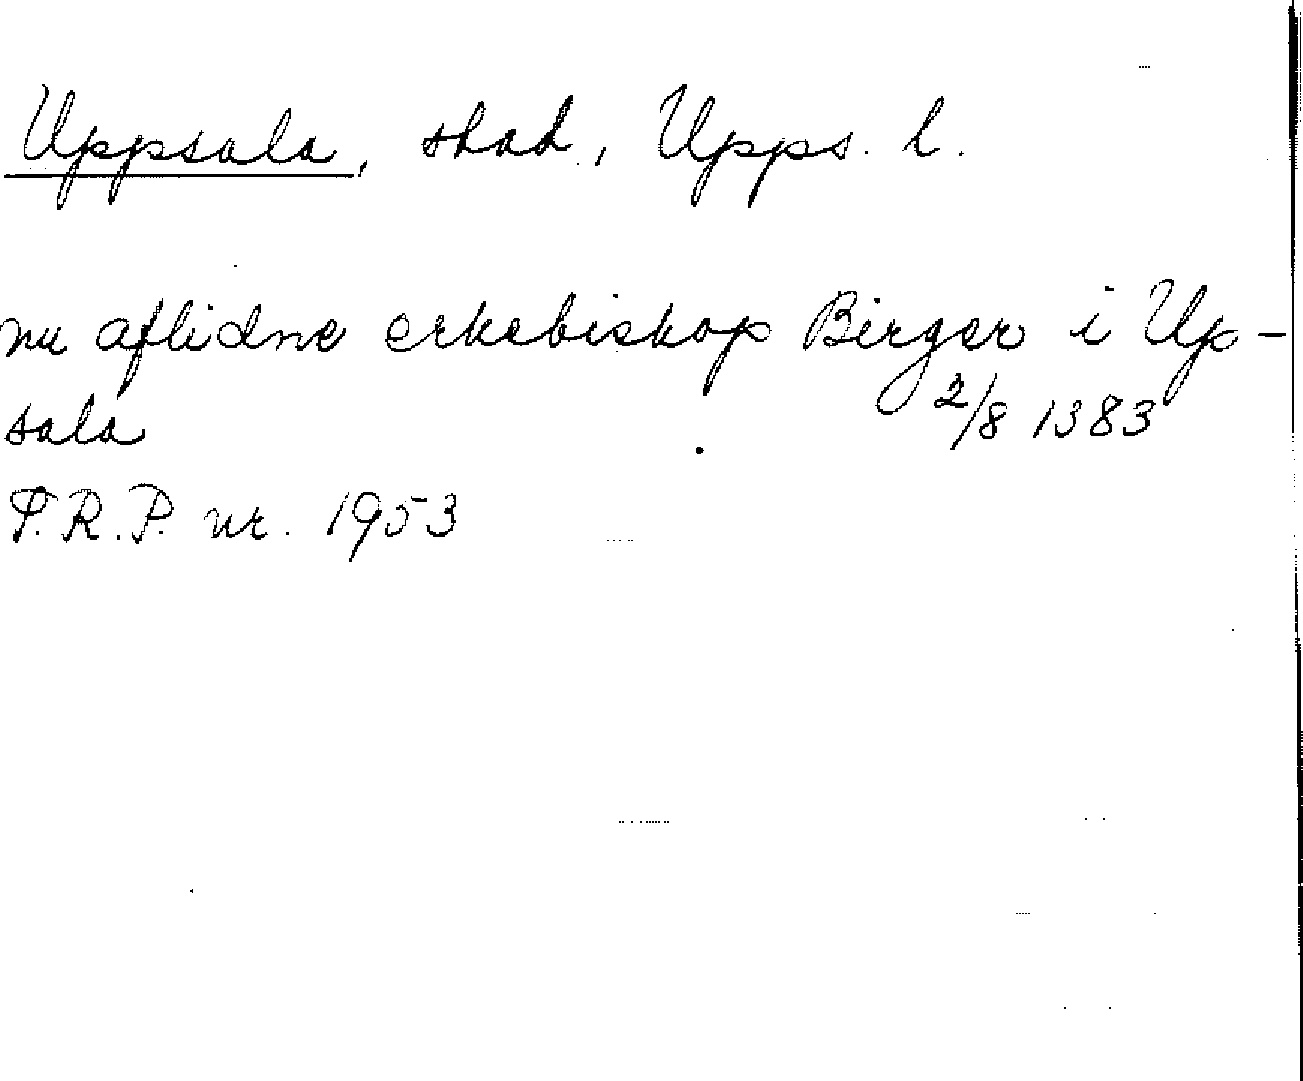 Uppsala, stad, Upps. l.
nu aflidne erkebiskop Birger i Up-
sala 2/8 1383
P.R.P. nr. 1953